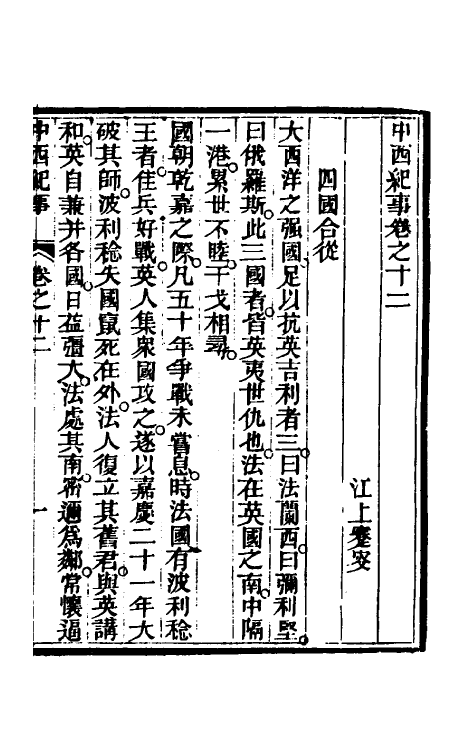 中西紀事卷之十二
江上蹇叟
四國合從
大西洋之强國足以抗英吉利者三曰法蘭西曰彌利堅
曰俄羅斯此三國者皆英夷世仇也法在英國之南中隔
一港累世不睦干戈相尋
國朝乾嘉之際凡五十年爭戰未嘗息時法國有波利稔
王者隹兵好戰英人集衆國攻之遂以嘉慶二十一年大
破其師波利稔失國竄死在外法人復立其舊君與英講
和英自兼并各國日益彊大法處其南密邇爲鄰常懷逼
中西紀事 卷之十二 一